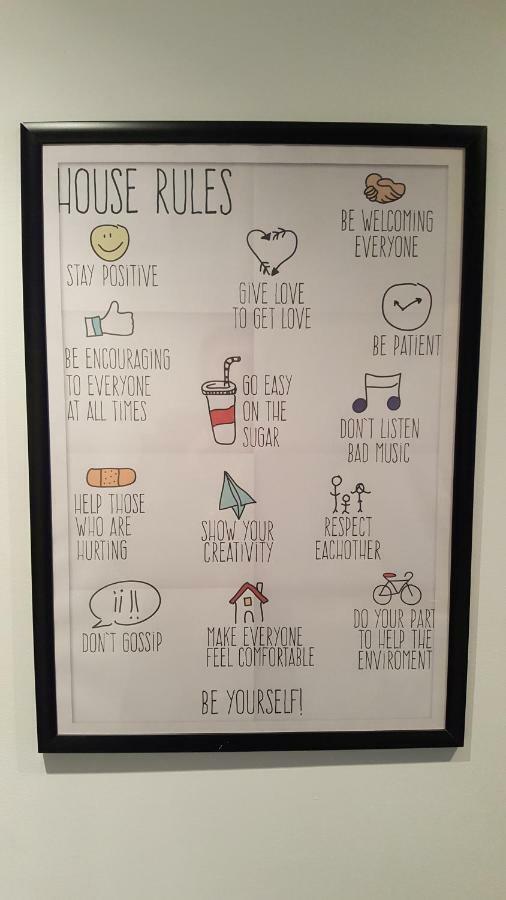 HOUSE RULES
BE WELCOMING
EVERYONE
STAY POSITIVE
GIVE LOVE
TO GET LOVE
BE PATIENT
BE ENCOURAGING
TO EVERYONE
AT ALL TIMES
GO EASY
ON THE
SUGAR
DON'T LISTEN
BAD MUSIC
HELP THOSE
WHO ARE
HURTING
SHOW YOUR
CREATIVITY
RESPECT
EACHOTHER
¡¡ !!
DON'T GOSSIP
MAKE EVERYONE
FEEL COMFORTABLE
DO YOUR PART
TO HELP THE
ENVIROMENT
BE YOURSELF!